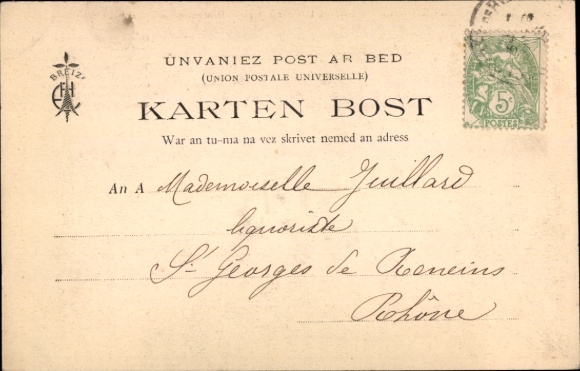 BREIZ
UNVANIEZ POST AR BED
(UNION POSTALE UNIVERSELLE)
KARTEN BOST
War an tu-ma na vez skrivet nemed an adress
5c
POSTES
An A Mademoiselle Juillard
liquoriste
St Georges de Reneins
Rhône